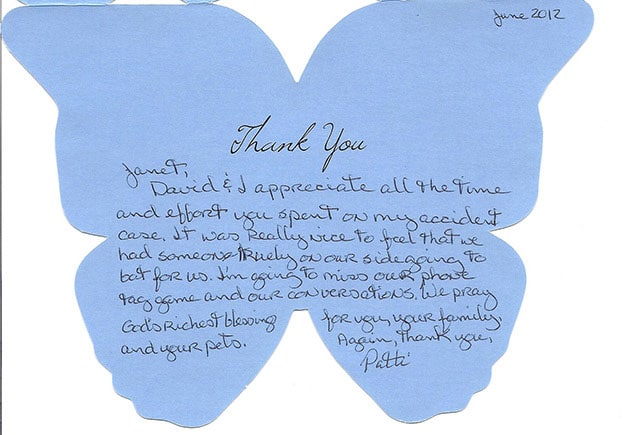 June 2012
Thank You
Janet,
David & I appreciate all the time
and effort you spent on my accident
case. It was really nice to feel that we
had someone truely on our side going to
bat for us. I'm going to miss our phone
tag game and our conversations. We pray
God's richest blessing for you, your family,
and your pets. Again, thank you,
Patti